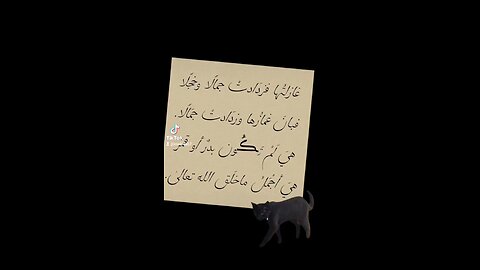 غازلتُها فزدادتْ جمالًا وخجلًا
فبانَ غمازُها وزدادتْ جمالًا.
هيَ لَمْ تَكُون بدرٌ أو قمرٌ
هيَ أجملُ ماخلق الله تعالى.
TikTok